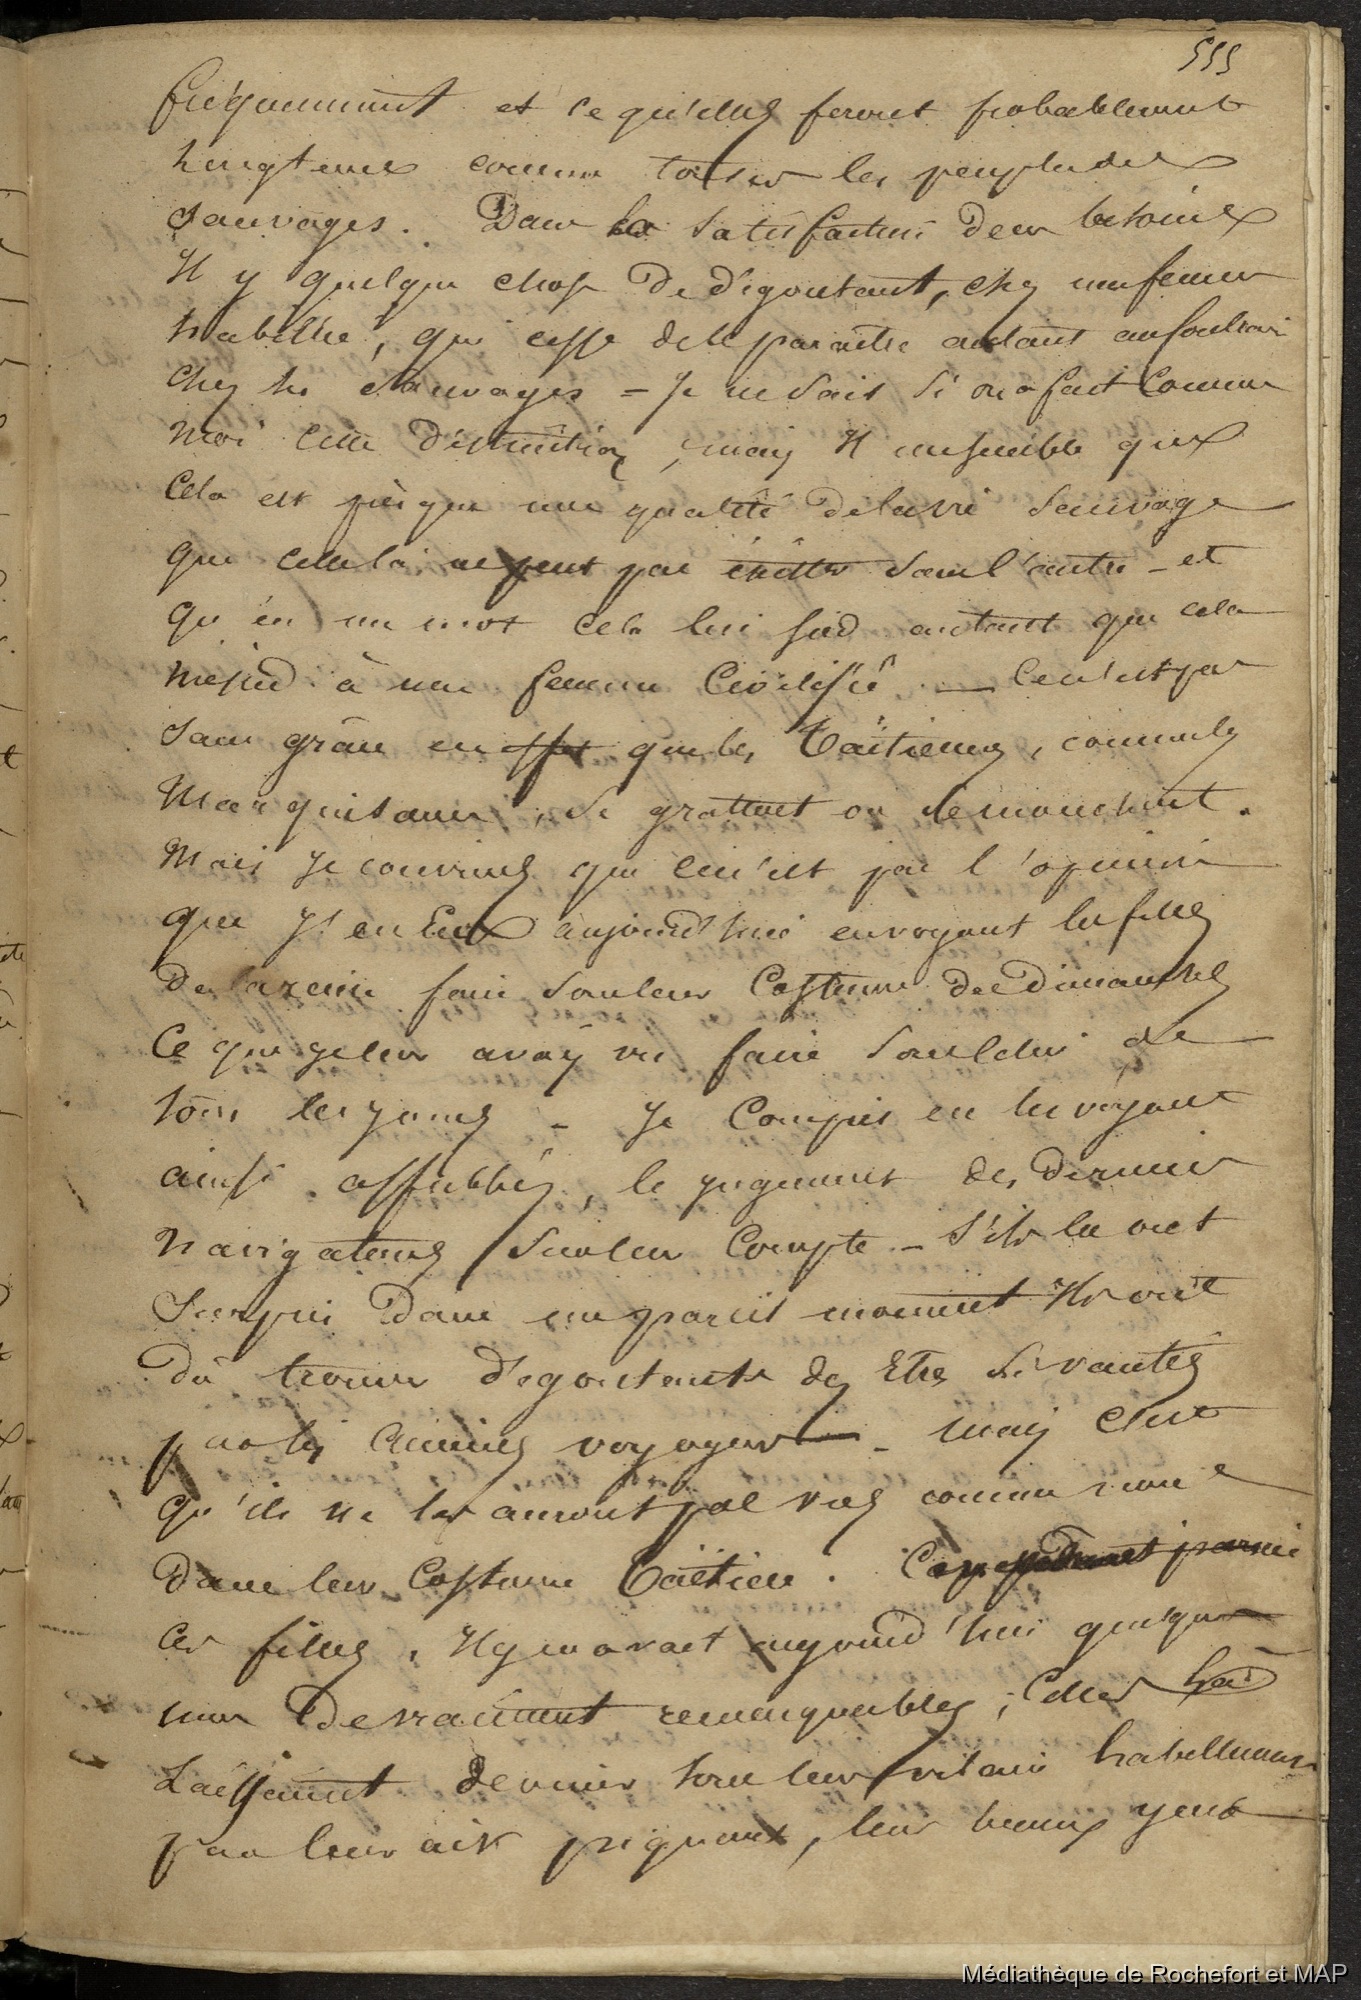 555
fréquemment et ce qu'elles feront probablement
longtems comme toutes les peuplades
sauvages. Dans la satisfaction de ces besoins
Il y quelque chose de dégoutant, chez une femme
habillée, qui cesse de le paraitre autant au contraire
chez les sauvages - Je ne sais si on a fait comme
moi cette distinction, mais Il me semble que
cela est presque une qualité de la vie sauvage
que celle là ne peut pas exister sans l'autre - et
qu'en un mot cela lui sied autant que cela
mésied à une femme Civilisée — Ce n'est pas
sans grâce en effet que les Taïtiennes, comme les
Marquisannes, se grattent ou se mouchent.
Mais Je conviens que ce n'est pas l'opinion
que J'en Eus aujourd'hui en voyant les filles
de la reine faire sous leur Costume des Dimanches
Ce que je leur avais vu faire sous celui de
tous les jours - Je Compris en les voyant
ainsi affublées, le jugement des derniers
navigateurs sur leur Compte - S'ils les ont
surpris dans un pareil moment Ils ont
dû trouver dégoutants des Etres si vantés
par les anciens voyageurs — mais c'est
qu'ils ne les auront pas vus comme nous
dans leur Costume Taïtien. Cependant parmi
ces filles, Il y en avait aujourd'hui quelques
unes de vraiment remarquables; Celles là
Laissaient deviner sous leur vilain habillement
par leur air piquant, leur beaux yeux
Médiathèque de Rochefort et MAP